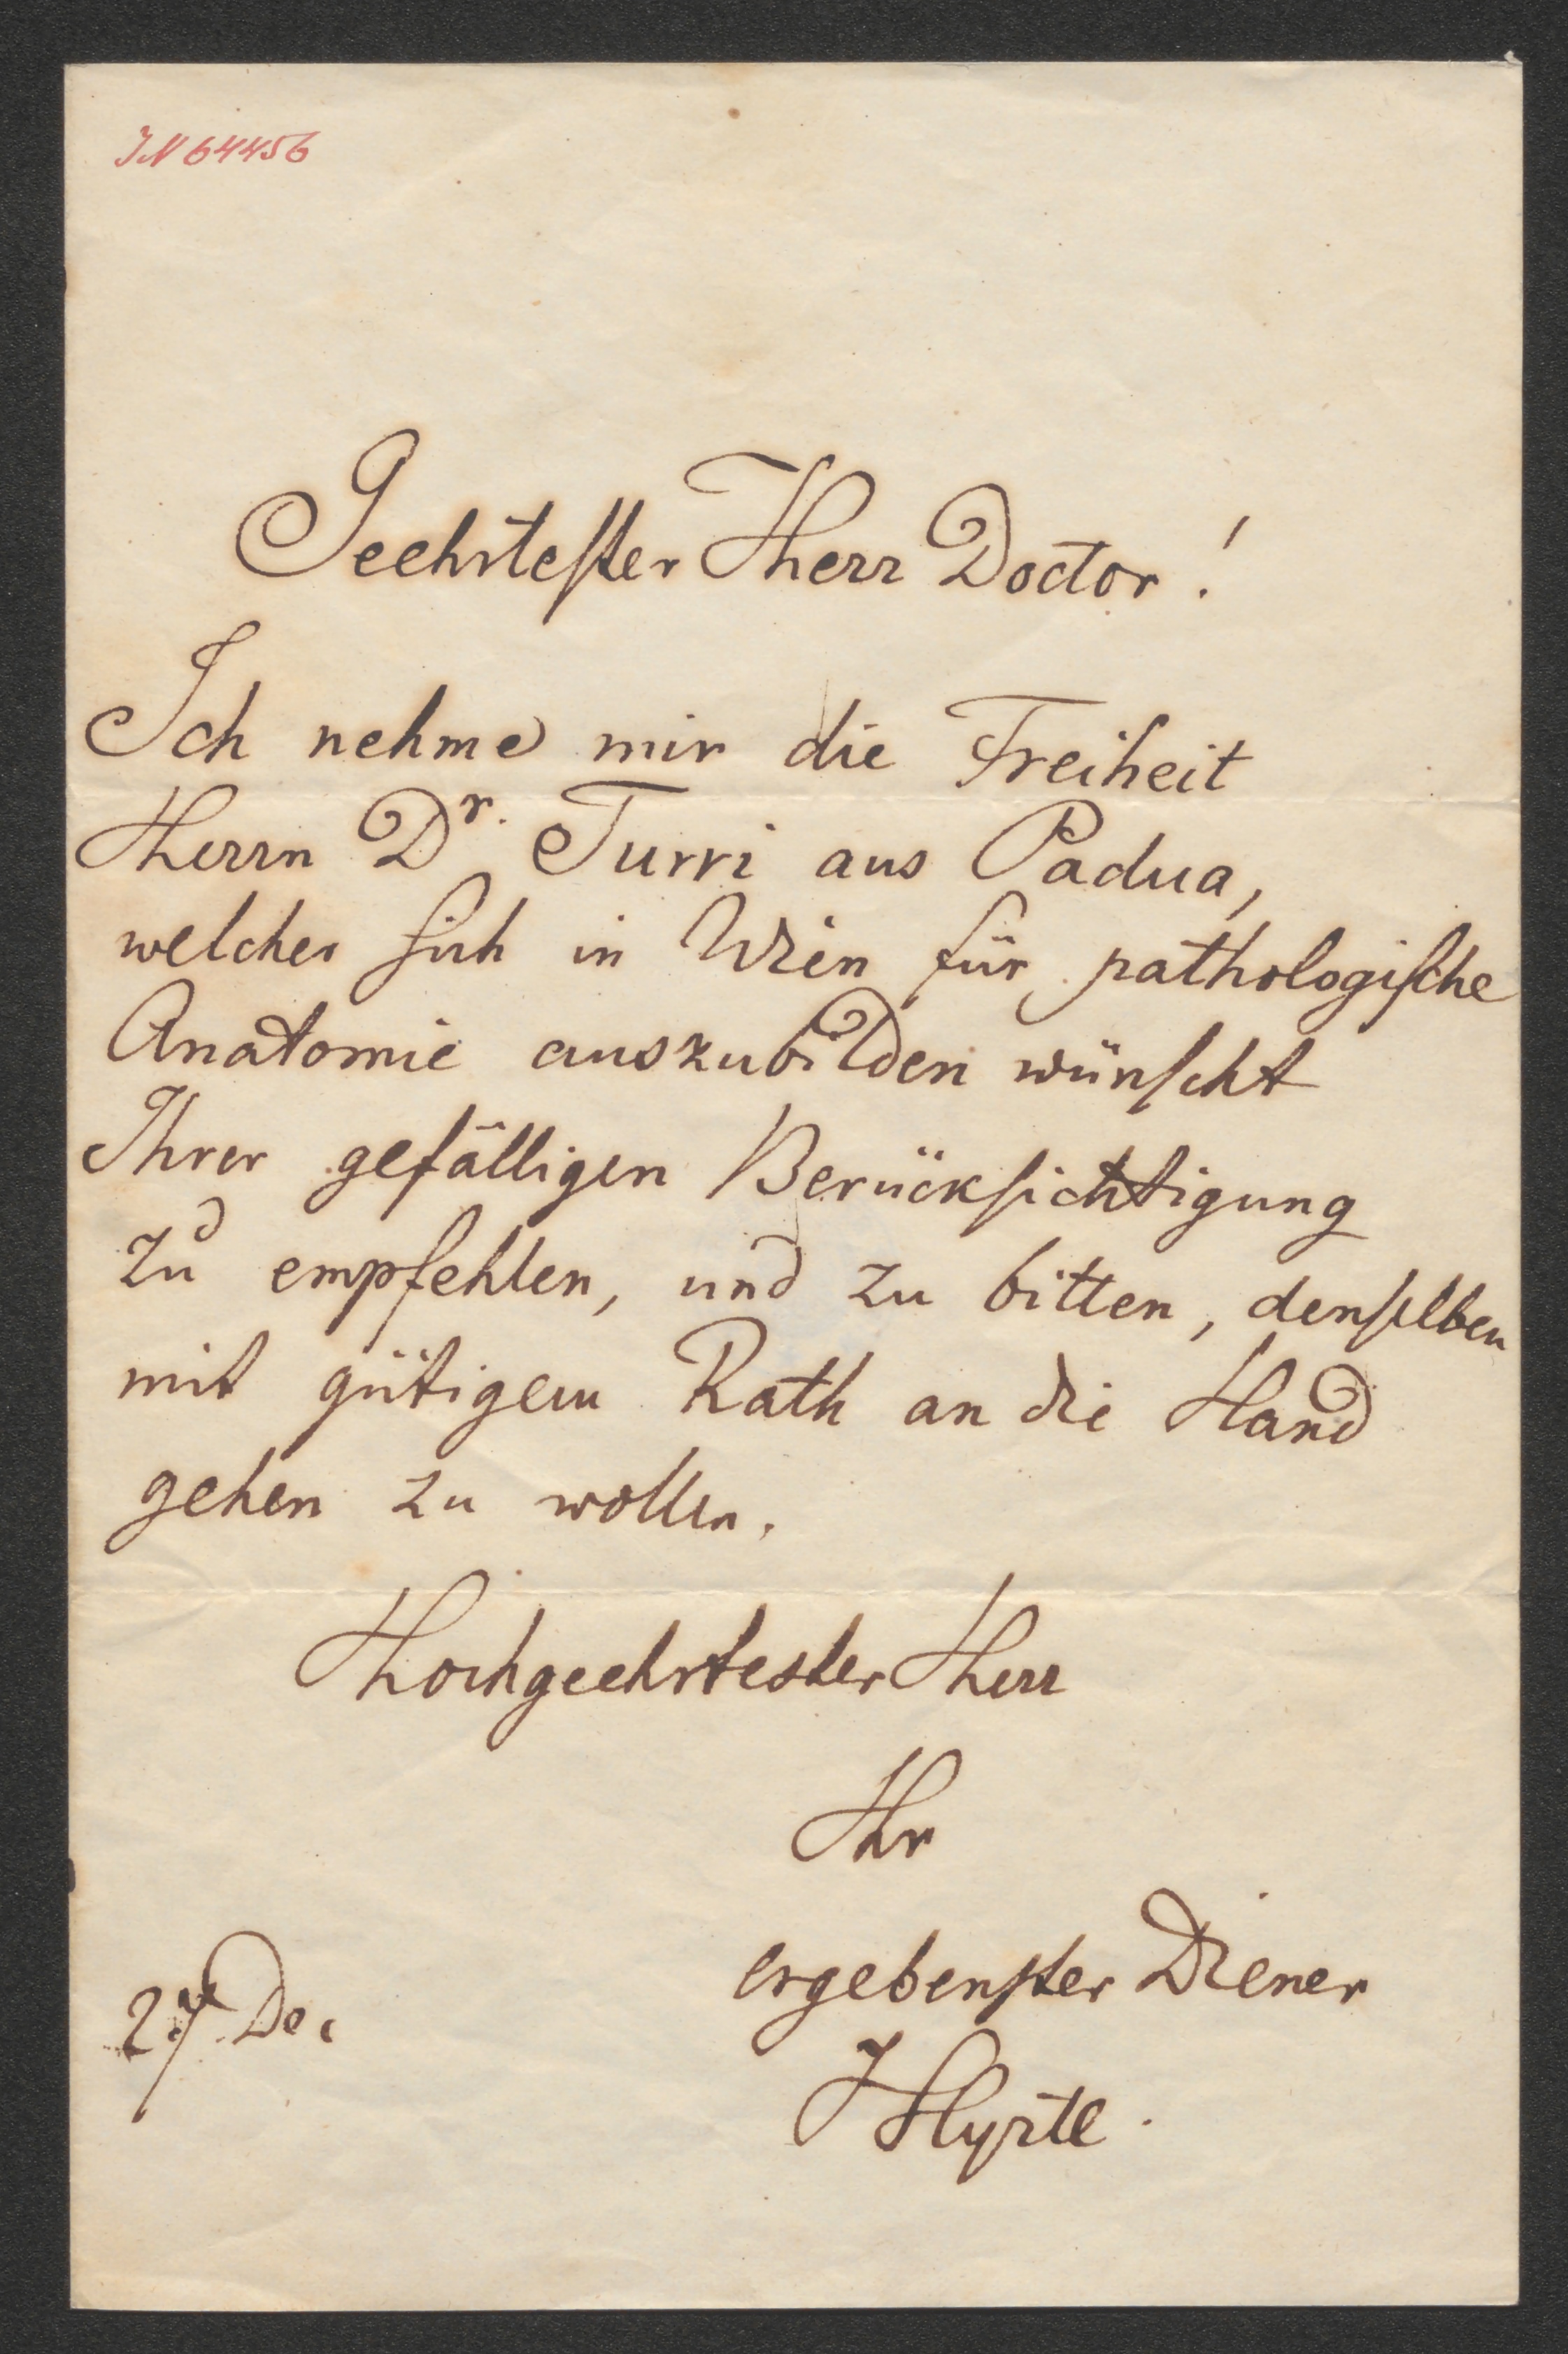 IN 64456
Geehrteſter Herr Doctor!
Ich nehme mir die Freiheit
Herrn Dr. Turri aus Padua,
welcher ſich in Wien für pathologiſche
Anatomie auszubilden wünſcht
Ihrer gefälligen Berückſichtigung
zu empfehlen, und zu bitten, denſelben
mit gütigem Rath an die Hand
gehen zu wollen.
Hochgeehrtester Herr
Ihr
ergebenſter Diener
27 Dec
J Hyrtl.